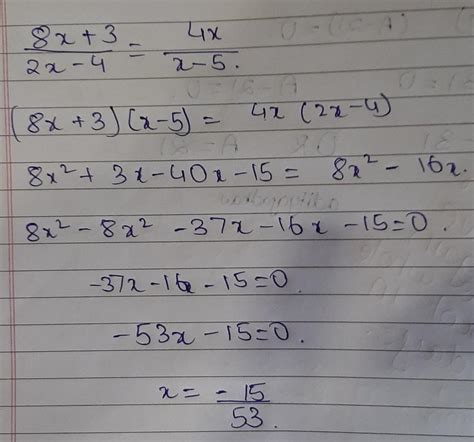 8x + 3 / 2x - 4 = 4x / x - 5.
(8x + 3) (x - 5) = 4x (2x - 4)
8x² + 3x - 40x - 15 = 8x² - 16x.
8x² - 8x² - 37x - 16x - 15 = 0.
-37x - 16x - 15 = 0.
-53x - 15 = 0.
x = - 15 / 53.